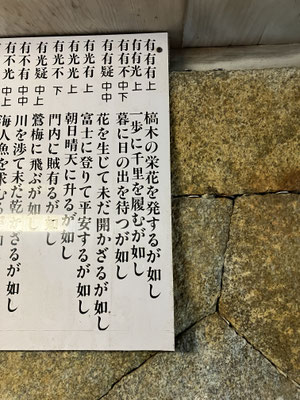 有有有 上 槁木の栄花を発するが如し
有有光 上 一歩に千里を履むが如し
有有不 中下 暮に日の出を待つが如し
有有疑 中中 花を生じて未だ開かざるが如し
有光有 上 富士に登りて平安するが如し
有光光 上 朝日晴天に升るが如し
有光不 下 門内に賊有るが如し
有光疑 中上 鶯梅に飛ぶが如し
有不有 中中 川を渉て未だ乾かざるが如し
有不光 中上 海人魚を求むる